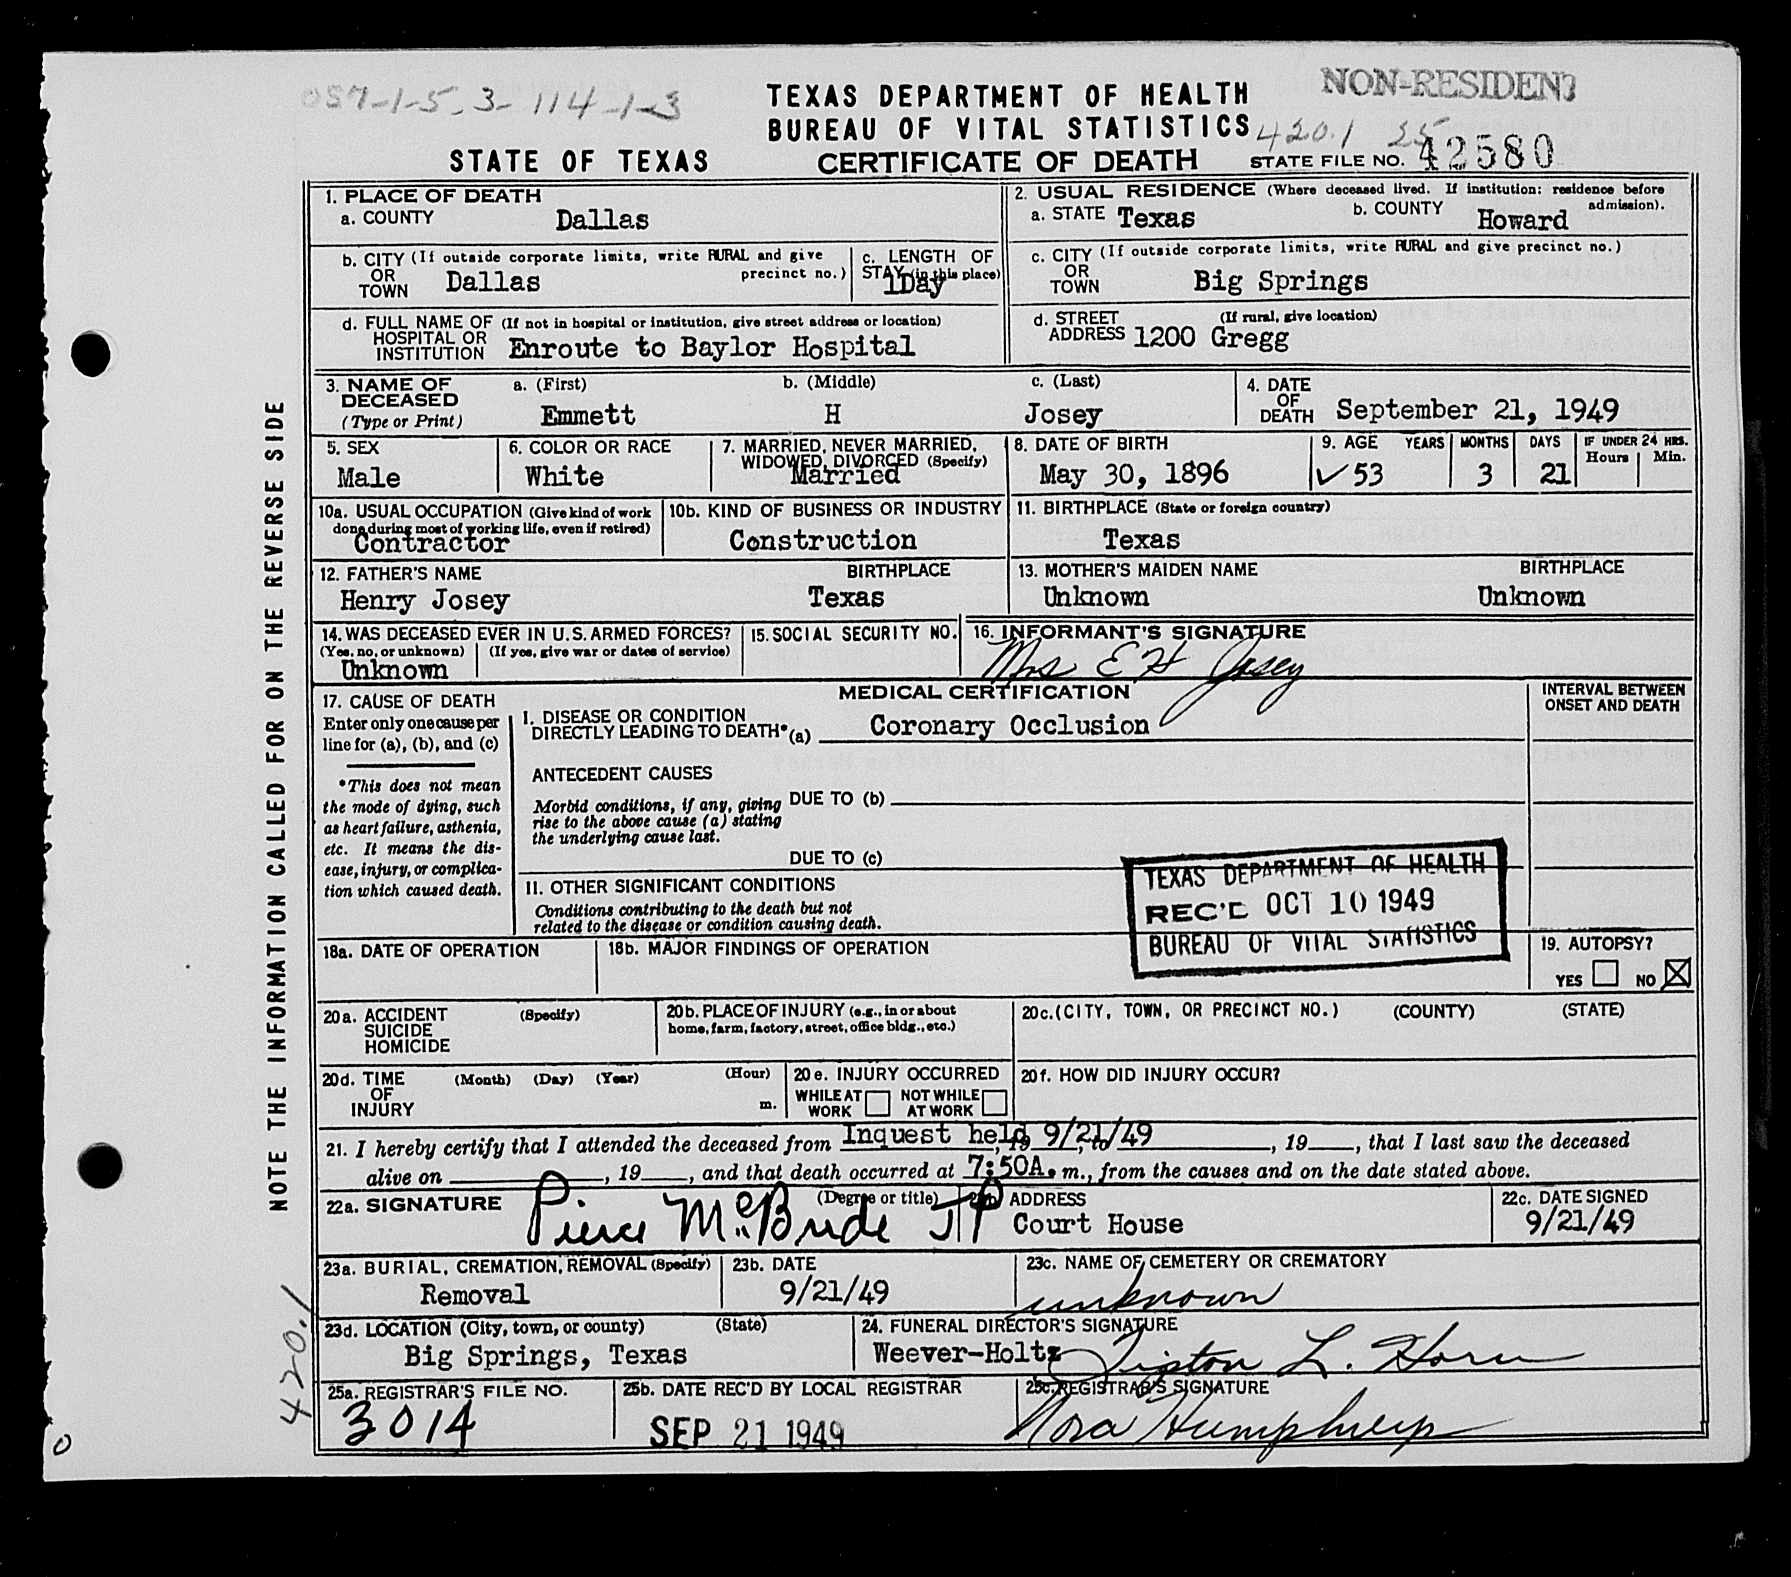 057-1-5.3-114-1-3
NON-RESIDENT
TEXAS DEPARTMENT OF HEALTH
BUREAU OF VITAL STATISTICS
4201 25
STATE OF TEXAS
CERTIFICATE OF DEATH
STATE FILE NO. 42580
1. PLACE OF DEATH
a. COUNTY Dallas
2. USUAL RESIDENCE (Where deceased lived. If institution: residence before admission).
a. STATE Texas b. COUNTY Howard
b. CITY (If outside corporate limits, write RURAL and give precinct no.)
OR
TOWN Dallas
c. LENGTH OF
STAY (in this place)
1Day
c. CITY (If outside corporate limits, write RURAL and give precinct no.)
OR
TOWN Big Springs
d. FULL NAME OF (If not in hospital or institution, give street address or location)
HOSPITAL OR
INSTITUTION Enroute to Baylor Hospital
d. STREET (If rural, give location)
ADDRESS 1200 Gregg
3. NAME OF
DECEASED
(Type or Print)
a. (First) b. (Middle) c. (Last)
Emmett H Josey
4. DATE
OF
DEATH September 21, 1949
5. SEX
Male
6. COLOR OR RACE
White
7. MARRIED, NEVER MARRIED,
WIDOWED, DIVORCED (Specify)
Married
8. DATE OF BIRTH
May 30, 1896
9. AGE YEARS MONTHS DAYS IF UNDER 24 HRS.
Hours Min.
✓53 3 21
10a. USUAL OCCUPATION (Give kind of work
done during most of working life, even if retired)
Contractor
10b. KIND OF BUSINESS OR INDUSTRY
Construction
11. BIRTHPLACE (State or foreign country)
Texas
12. FATHER'S NAME BIRTHPLACE
Henry Josey Texas
13. MOTHER'S MAIDEN NAME BIRTHPLACE
Unknown Unknown
14. WAS DECEASED EVER IN U.S. ARMED FORCES?
(Yes, no, or unknown) (If yes, give war or dates of service)
Unknown
15. SOCIAL SECURITY NO.
16. INFORMANT'S SIGNATURE
Mrs E H Josey
17. CAUSE OF DEATH
Enter only one cause per
line for (a), (b), and (c)
*This does not mean
the mode of dying, such
as heart failure, asthenia,
etc. It means the dis-
ease, injury, or complica-
tion which caused death.
MEDICAL CERTIFICATION
INTERVAL BETWEEN
ONSET AND DEATH
I. DISEASE OR CONDITION
DIRECTLY LEADING TO DEATH* (a) Coronary Occlusion
ANTECEDENT CAUSES
Morbid conditions, if any, giving
rise to the above cause (a) stating
the underlying cause last.
DUE TO (b)
DUE TO (c)
II. OTHER SIGNIFICANT CONDITIONS
Conditions contributing to the death but not
related to the disease or condition causing death.
TEXAS DEPARTMENT OF HEALTH
REC'D OCT 10 1949
BUREAU OF VITAL STATISTICS
18a. DATE OF OPERATION
18b. MAJOR FINDINGS OF OPERATION
19. AUTOPSY?
YES NO X
20a. ACCIDENT (Specify)
SUICIDE
HOMICIDE
20b. PLACE OF INJURY (e.g., in or about
home, farm, factory, street, office bldg., etc.)
20c. (CITY, TOWN, OR PRECINCT NO.) (COUNTY) (STATE)
20d. TIME (Month) (Day) (Year) (Hour)
OF
INJURY m.
20e. INJURY OCCURRED
WHILE AT WORK NOT WHILE AT WORK
20f. HOW DID INJURY OCCUR?
21. I hereby certify that I attended the deceased from Inquest held 9/21/49, 19 to , 19 , that I last saw the deceased
alive on , 19 , and that death occurred at 7:50A.m., from the causes and on the date stated above.
22a. SIGNATURE (Degree or title)
Pierce McBride JP
22b. ADDRESS
Court House
22c. DATE SIGNED
9/21/49
23a. BURIAL, CREMATION, REMOVAL (Specify)
Removal
23b. DATE
9/21/49
23c. NAME OF CEMETERY OR CREMATORY
unknown
23d. LOCATION (City, town, or county) (State)
Big Springs, Texas
24. FUNERAL DIRECTOR'S SIGNATURE
Weever-Holtz Tipton L. Horn
25a. REGISTRAR'S FILE NO.
3014
25b. DATE REC'D BY LOCAL REGISTRAR
SEP 21 1949
25c. REGISTRAR'S SIGNATURE
Nora Humphreys
NOTE THE INFORMATION CALLED FOR ON THE REVERSE SIDE
420.1